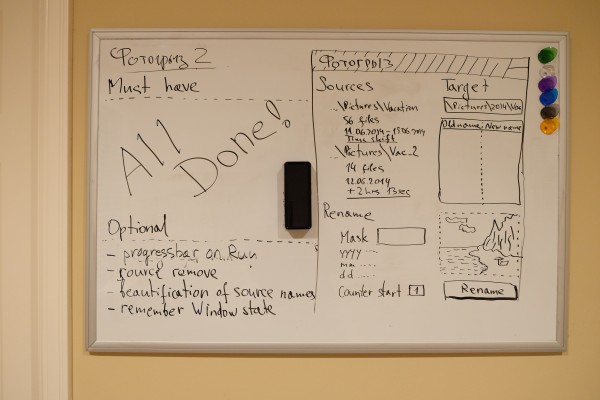 Фотогрыз 2
Must have
All
Done!
Optional
- progressbar on Run
- source remove
- beautification of source names
- remember Window state
Фотогрыз
Sources
..\Pictures\Vacation
56 files
11.06.2014-15.06.2014
Time shift
..\Pictures\Vac_2
14 files
12.06.2014
+2 hrs 13 sec
Rename
Mask
yyyy ....
mm ...
dd ....
Counter start 1
Target
\Pictures\2014\Vac
Old name New name
Rename